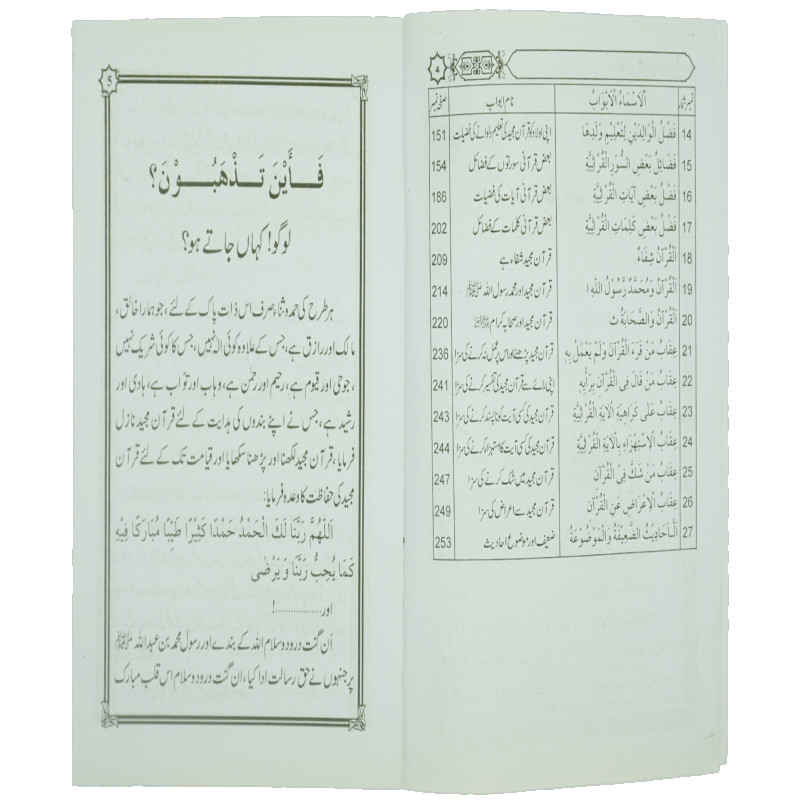 4
نمبر شمار اَلْاَسْمَاءُ الْاَبْوَابُ نام ابواب صفحہ نمبر
14 فَضْلُ الْوَالِدَيْنِ لِتَعْلِيْمِ وَلَدِهَا اپنی اولاد کو قرآن مجید کی تعلیم دلوانے کی فضیلت 151
15 فَضَائِلُ بَعْضِ السُّوَرِ الْقُرْاٰنِيَّةِ بعض قرآنی سورتوں کے فضائل 154
16 فَضْلُ بَعْضِ آيَاتِ الْقُرْاٰنِيَّةِ بعض قرآنی آیات کی فضیلت 186
17 فَضْلُ بَعْضِ كَلِمَاتِ الْقُرْاٰنِيَّةِ بعض قرآنی کلمات کے فضائل 202
18 اَلْقُرْآنُ شِفَاءٌ قرآن مجید شفاء ہے 209
19 اَلْقُرْآنُ وَمُحَمَّدٌ رَّسُوْلُ اللّٰهِ ا قرآن مجید اور محمد رسول اللہ ﷺ 214
20 اَلْقُرْآنُ وَالصَّحَابَةُ ث قرآن مجید اور صحابہ کرام 220
21 عِقَابُ مَنْ قَرَءَ الْقُرْآنَ وَلَمْ يَعْمَلْ بِهِ قرآن مجید پڑھنے اور اس پر عمل نہ کرنے کی سزا 236
22 عِقَابُ مَنْ قَالَ فِى الْقُرْآنِ بِرَأْيِهِ اپنی رائے سے قرآن مجید کی تفسیر کرنے کی سزا 241
23 عِقَابُ عَلٰى كَرَاهِيَةِ الْآيَةِ الْقُرْاٰنِيَّةِ قرآن مجید کی کسی آیت کو ناپسند کرنے کی سزا 243
24 عِقَابُ الْاِسْتِهْزَاءِ بِالْآيَةِ الْقُرْاٰنِيَّةِ قرآن مجید کی کسی آیت کا استہزاء کرنے کی سزا 244
25 عِقَابُ مَنْ شَكَّ فِىْ الْقُرْآنِ قرآن مجید میں شک کرنے کی سزا 247
26 عِقَابُ الْاِعْرَاضِ عَنِ الْقُرْآنِ قرآن مجید سے اعراض کی سزا 249
27 اَلْاَحَادِيْثُ الضَّعِيْفَةُ وَالْمَوْضُوْعَةُ ضعیف اور موضوع احادیث 253
5
فَـاَيْنَ تَـذْهَبُـوْنَ؟
لوگو! کہاں جاتے ہو؟
ہر طرح کی حمد و ثناء صرف اس ذات پاک کے لئے، جو ہمارا خالق،
مالک اور رازق ہے، جس کے علاوہ کوئی الٰہ نہیں، جس کا کوئی شریک نہیں
، جو حی اور قیوم ہے، رحیم اور رحمٰن ہے، وہاب اور تواب ہے، ہادی اور
رشید ہے، جس نے اپنے بندوں کی ہدایت کے لئے قرآن مجید نازل
فرمایا، قرآن مجید لکھنا اور پڑھنا سکھایا اور قیامت تک کے لئے قرآن
مجید کی حفاظت کا وعدہ فرمایا:
اَللّٰهُمَّ رَبَّنَا لَكَ الْحَمْدُ حَمْدًا كَثِيْرًا طَيِّبًا مُبَارَكًا فِيْهِ
كَمَا يُحِبُّ رَبَّنَا وَيَرْضٰى
اور..................!
اَن گنت درود و سلام اللہ کے بندے اور رسول محمد بن عبداللہ ﷺ
پر جنہوں نے حق رسالت ادا کیا، ان گنت درود و سلام اس قلب مبارک